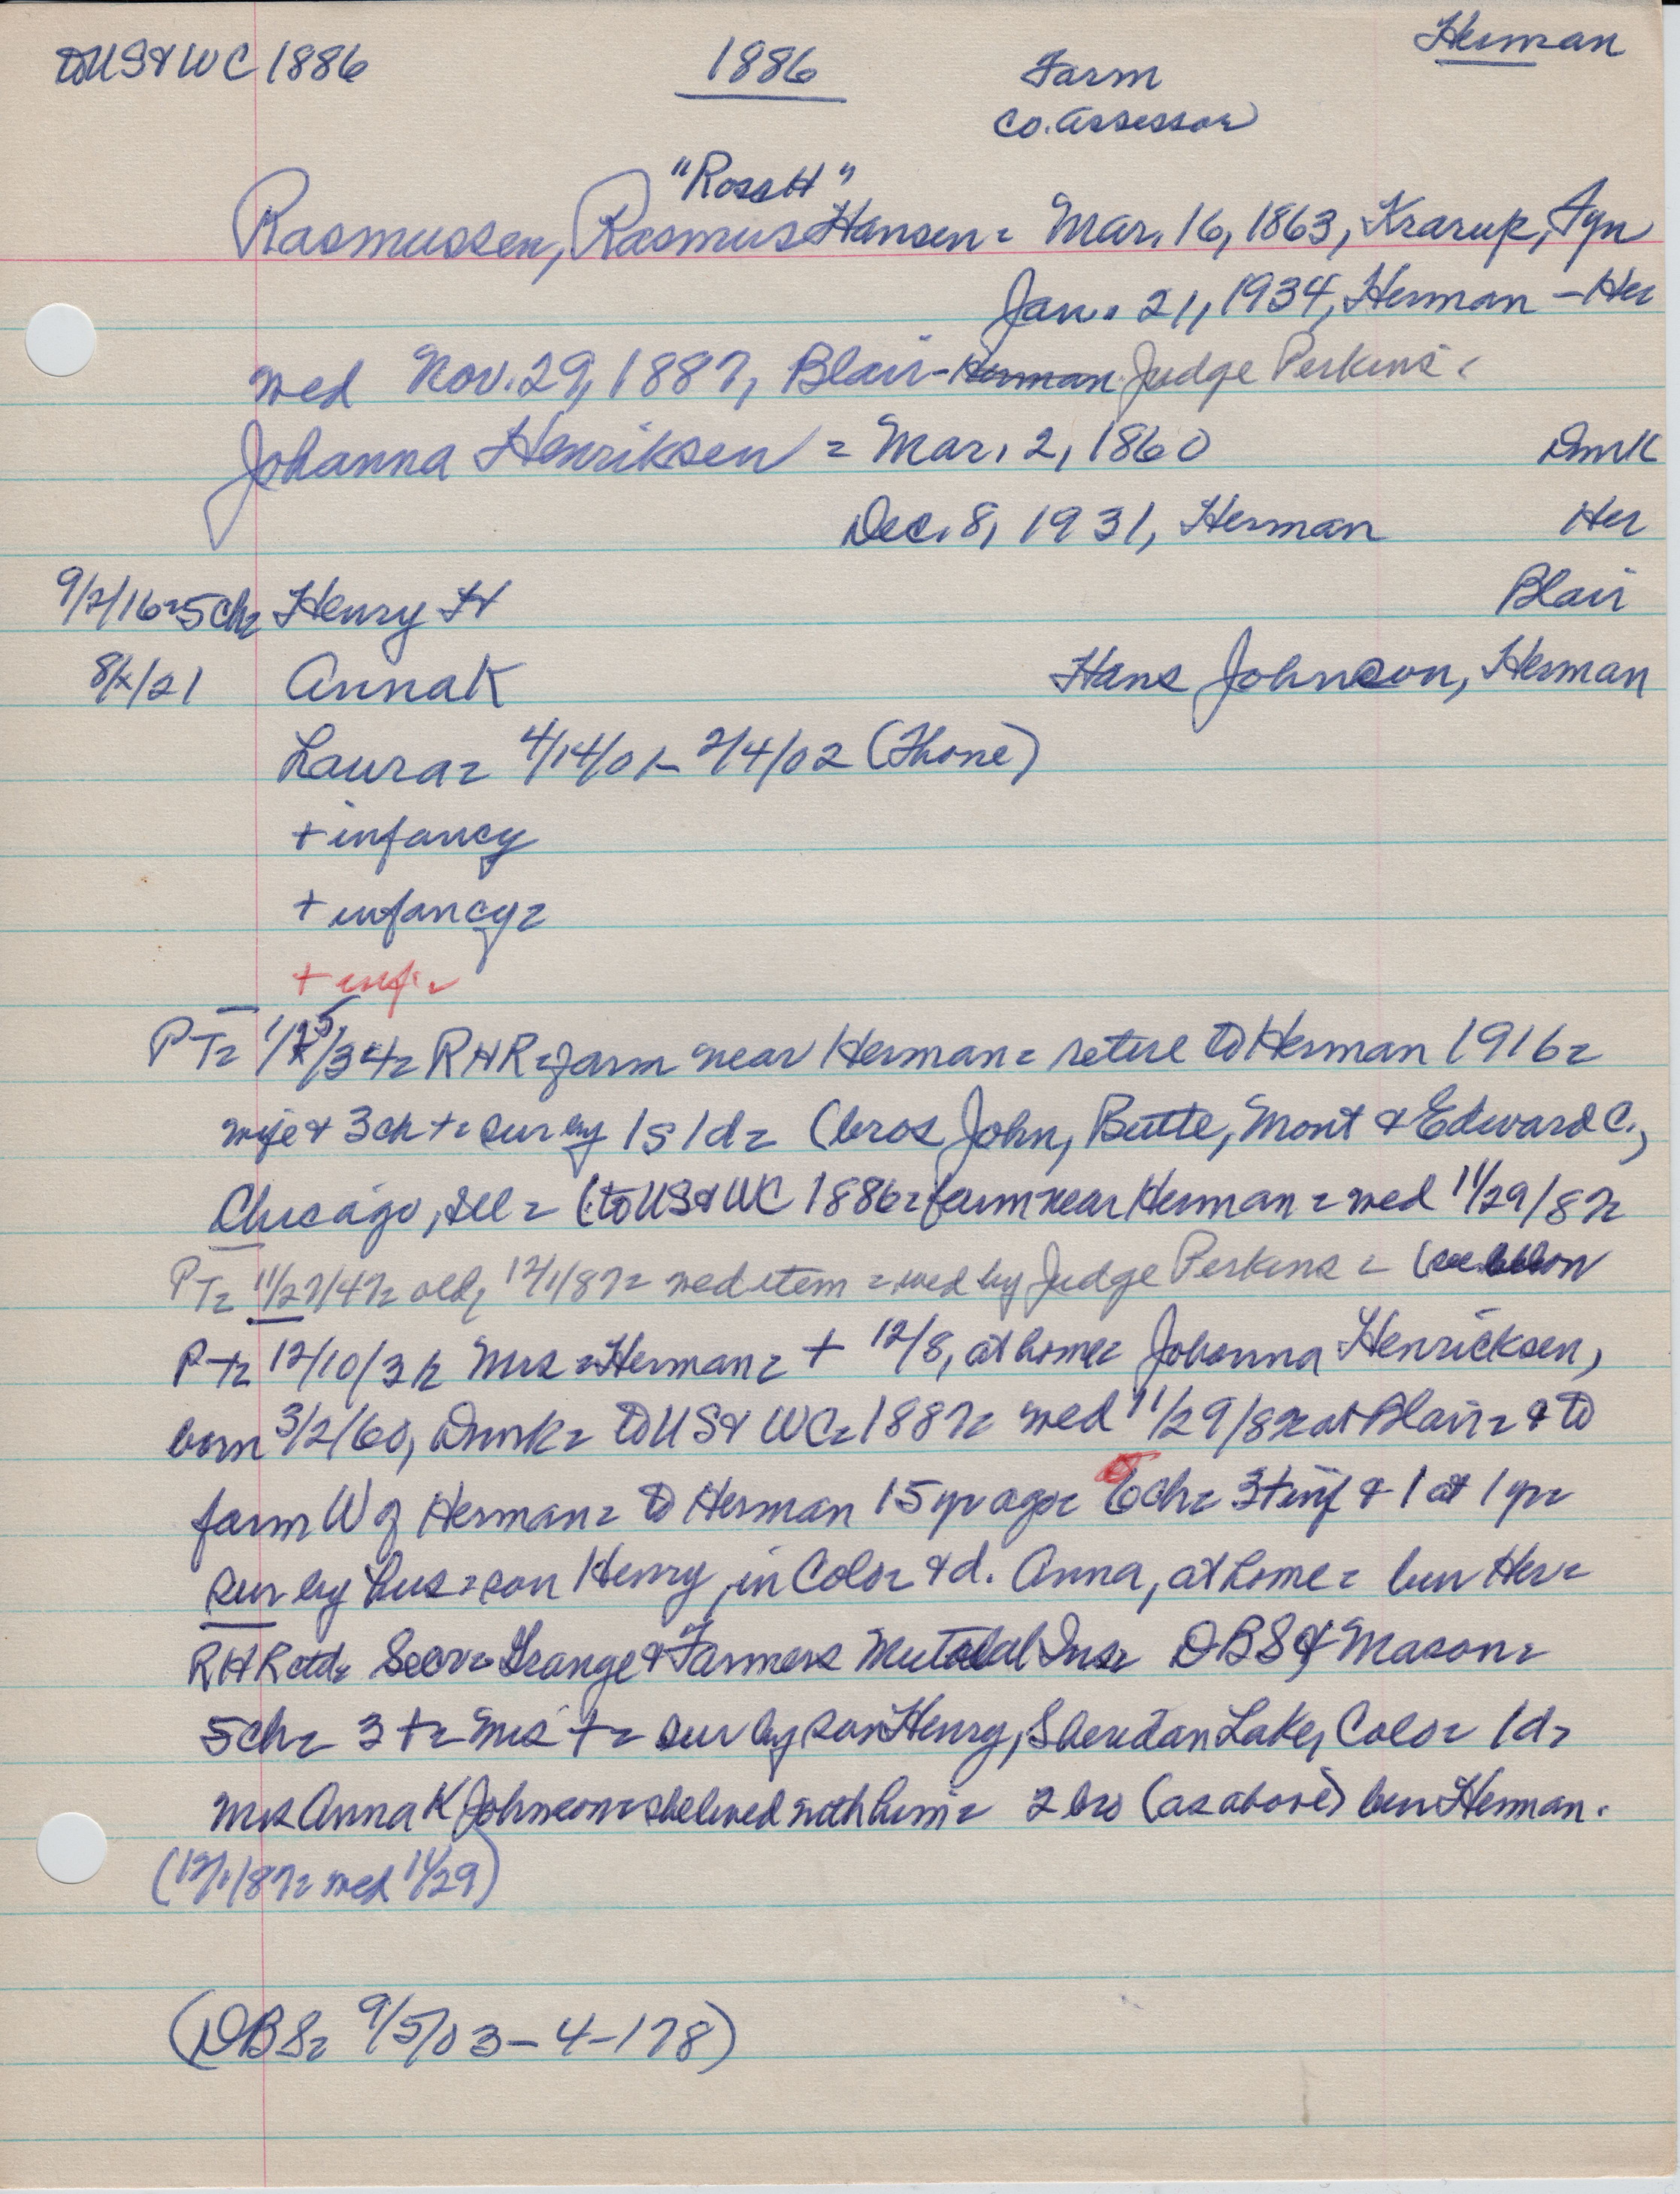 to US & WC 1886 1886 Farm Herman
Co. Assessor
"Ross H"
Rasmussen, Rasmus Hansen = Mar. 16, 1863, Krarup, Fyn
Jan. 21, 1934, Herman - Her
wed Nov. 29, 1887, Blair - Herman Judge Perkins =
Johanna Henriksen = Mar. 2, 1860 Dmk
Dec. 8, 1931, Herman Her
9/2/16 = 5 ch = Henry H Blair
8/ /21 Anna K Hans Johnson, Herman
Laura = 4/14/01 - 2/4/02 (Thone)
+ infancy
+ infancy =
+ inf =
PT = 1/25/34 = RHR = farm near Herman = retire to Herman 1916 =
wife & 3 ch + = sur by 1 s 1 d = (bros John, Butte, Mont & Edward C.,
Chicago, Ill = (to US & WC 1886 = farm near Herman = wed 11/29/87 =
PT = 11/27/47 = old, 12/1/87 = wed item = wed by Judge Perkins = (
PT = 12/10/31 = Mrs = Herman = + 12/8, at home = Johanna Henricksen,
born 3/2/60, Dmk = to US & WC = 1887 = wed 11/29/87 = at Blair = & to
farm W of Herman = to Herman 15 yr ago = 6 ch = 3 + inf & 1 at 1 yr =
sur by hus = son Henry, in Colo = & d. Anna, at home = bur Her =
RHR ctd = Secr = Grange & Farmers Mutual Ins = DBS & Mason =
5 ch = 3 + = Mrs + = sur by son Henry, Sheridan Lake, Colo = 1 d =
Mrs Anna K Johnson = she lived with him = 2 bro (as above) bur Herman.
(12/1/87 = wed 11/29)
(DBS = 9/5/03 - 4 - 178)